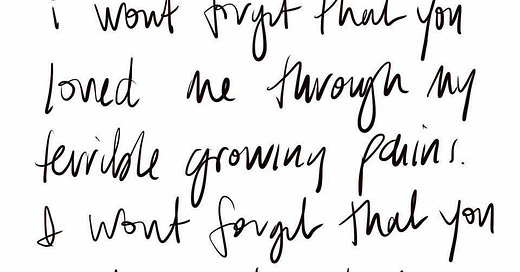 i wont forget that you
loved me through my
terrible growing pains.
I wont forget that you